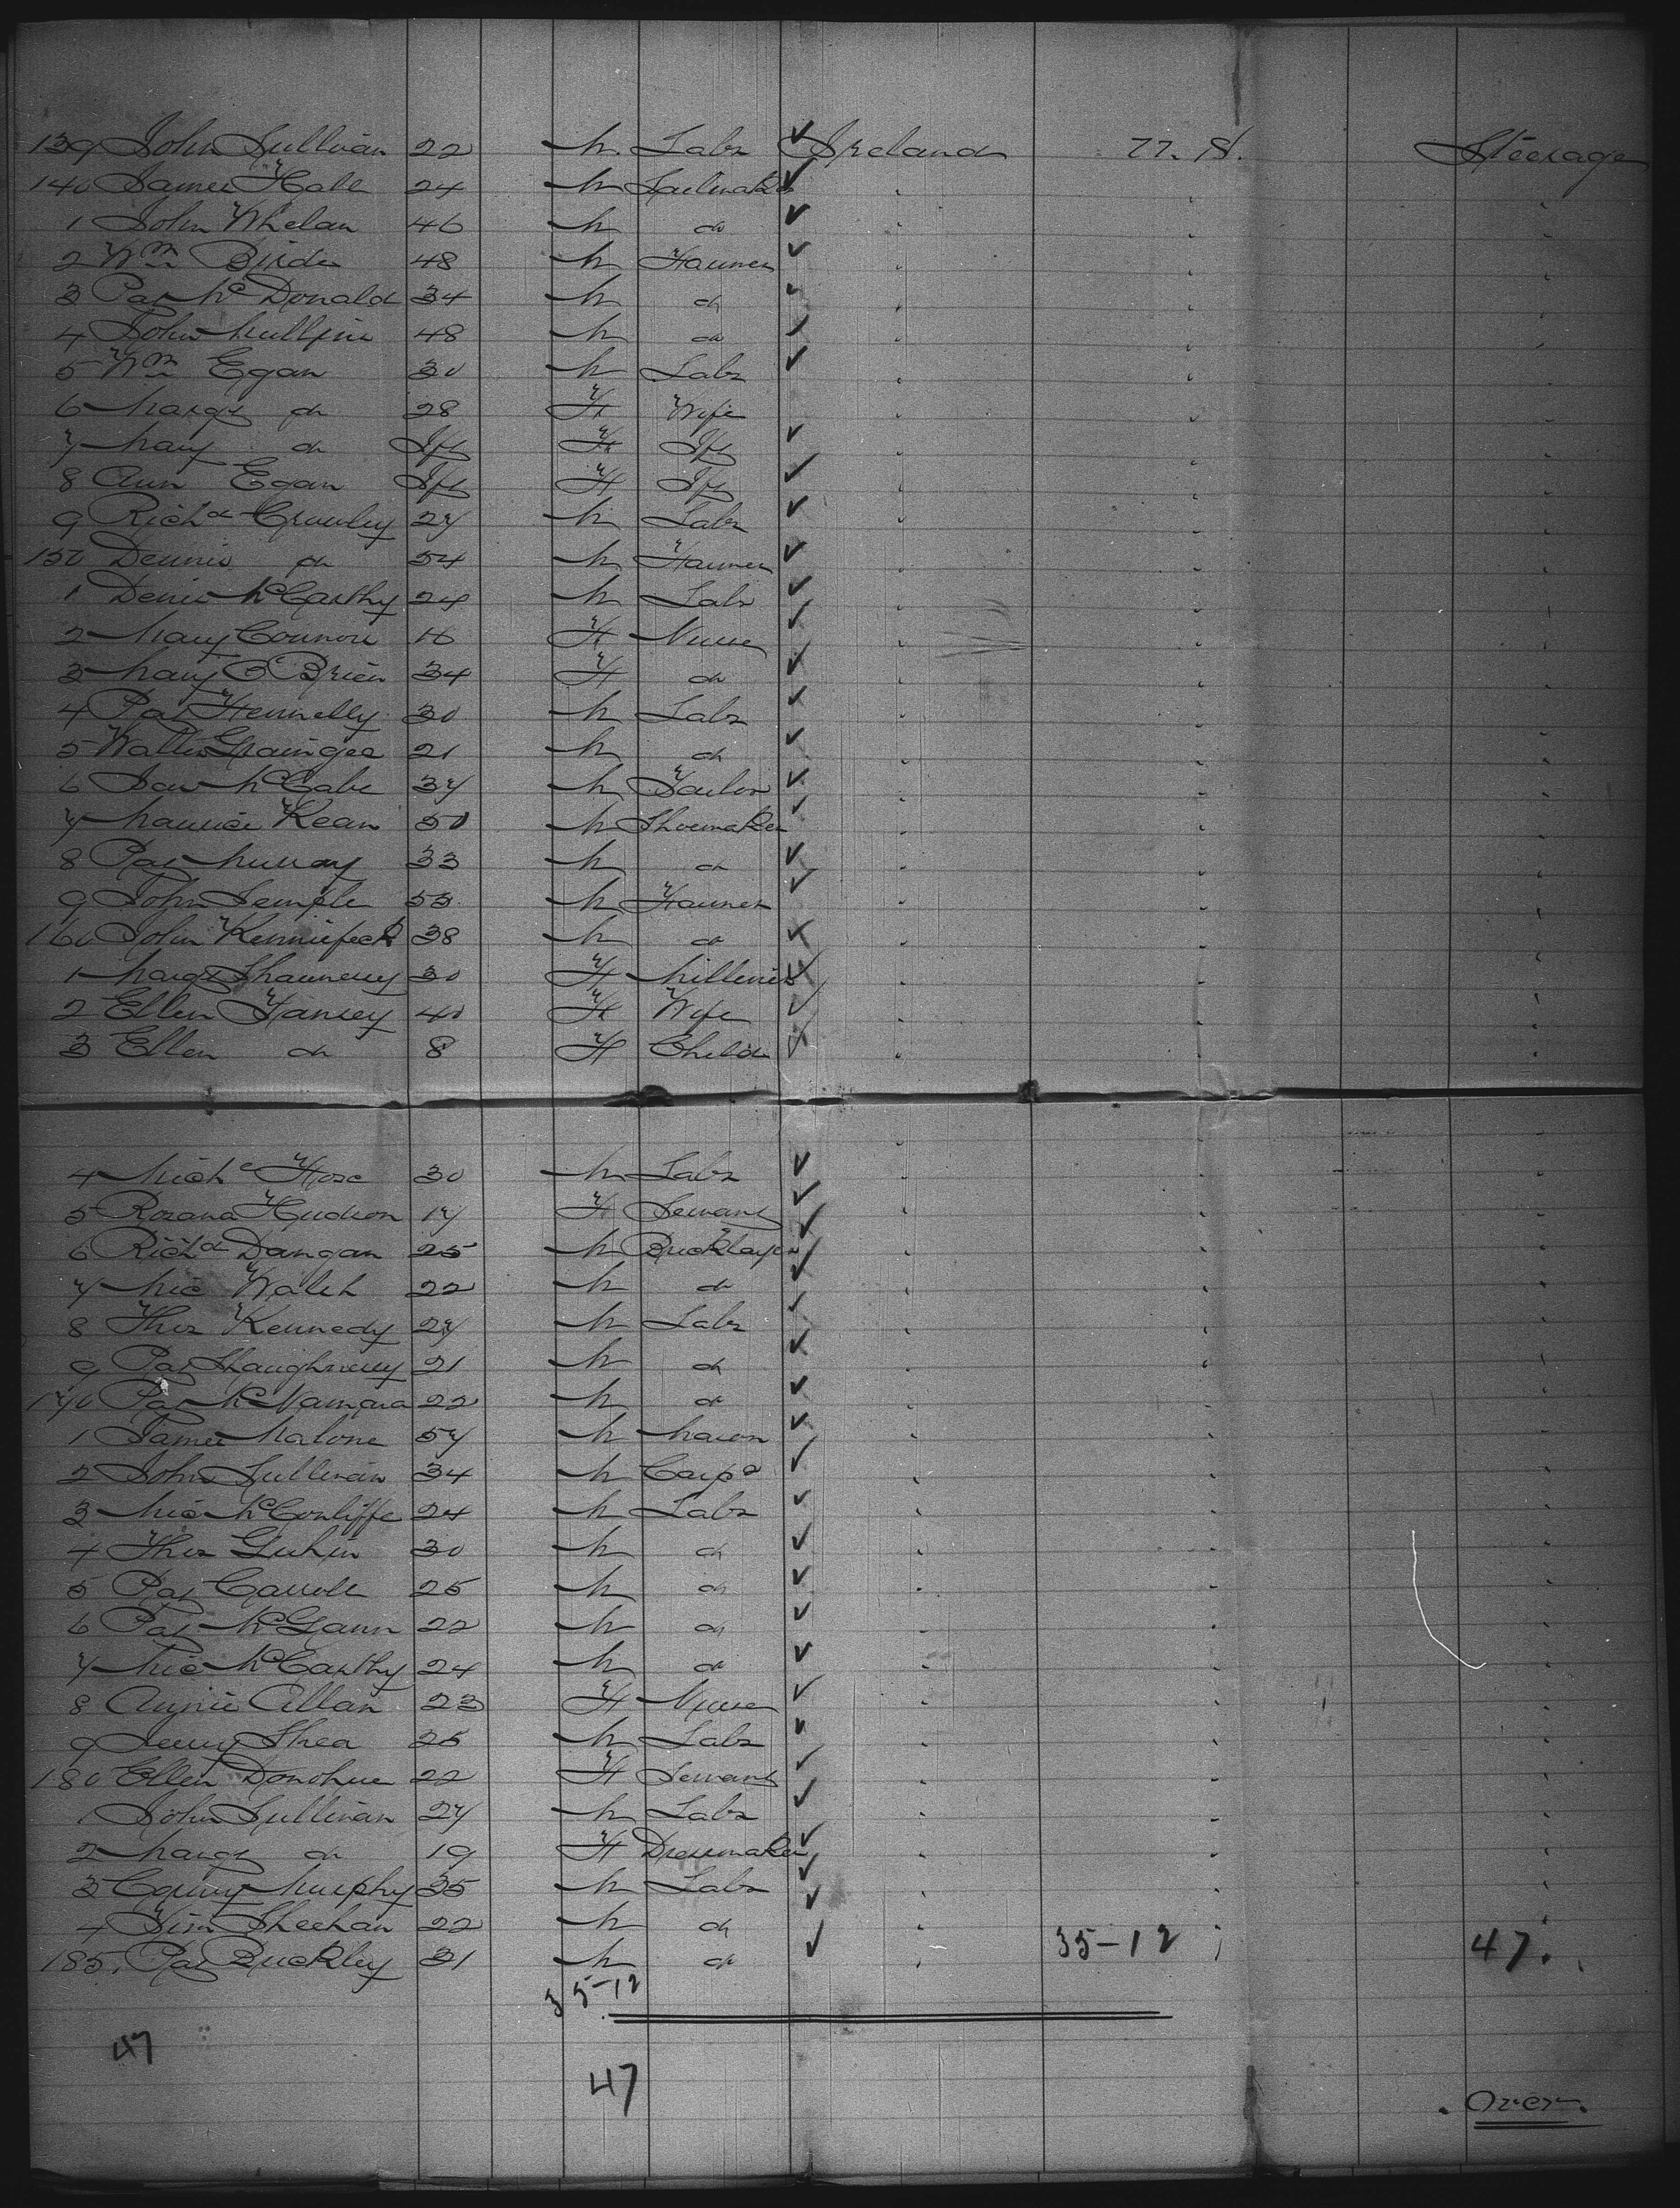 139 John Sullivan 22 M Labr Ireland U.S. Steerage
140 James Hall 24 M Sailmaker
1 John Whelan 46 M do
2 Wm 48 M Farmer
3 Pat McDonald 34 M do
4 John Mullins 48 M do
5 Wm Egan 30 M Labr
6 Margt do 28 F Wife
7 Mary do Inft F Inft
8 Ann Egan Inft F Inft
9 Richd Crowley 27 M Labr
150 Dennis do 54 M Farmer
1 Denis McCarthy 24 M Labr
2 Mary Connors 16 F Nurse
3 Mary O'Brien 34 F do
4 Pat Hennelly 30 M Labr
5 Walter Grainger 21 M do
6 McCabe 37 M Tailor
7 Maurice Kean 50 M Shoemaker
8 Pat Murray 33 M do
9 John Semple 53 M Farmer
160 John Kennifeck 38 M do
1 Margt Shaunessy 30 F Milliner
2 Ellen 40 F Wife
3 Ellen do 8 F Child
4 Michl 30 M Labr
5 Rosana Hudson 17 F Servant
6 Richd Dangan 25 M Bricklayer
7 Mic Walsh 22 M do
8 Thos Kennedy 27 M Labr
9 Pat Shaughnessy 21 M do
170 Pat McNamara 22 M do
1 James Malone 57 M Mason
2 John Sullivan 34 M Carpr
3 Mic McConliffe 24 M Labr
4 Thos 30 M do
5 Pat Carroll 25 M do
6 Pat McGann 22 M do
7 Mic McCarthy 24 M do
8 Annie Allan 23 F Nurse
9 Jerry Shea 25 M Labr
180 Ellen Donohue 22 F Servant
1 John Sullivan 27 M Labr
2 Margt do 19 F Dressmaker
3 Murphy 35 M Labr
4 Tim Sheehan 22 M do
185. Pat Buckley 21 M do 35-12 47.
35-12
47
47
Over.